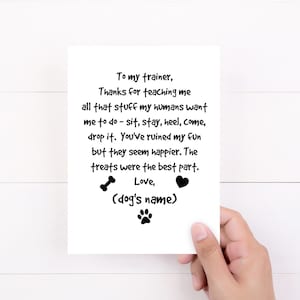 To my trainer,
Thanks for teaching me
all that stuff my humans want
me to do - sit, stay, heel, come,
drop it. You've ruined my fun
but they seem happier. The
treats were the best part.
Love,
(dog's name)